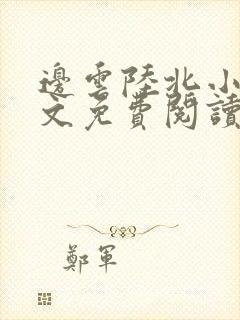 邊雲陸北小
文免費閱讀
鄭軍